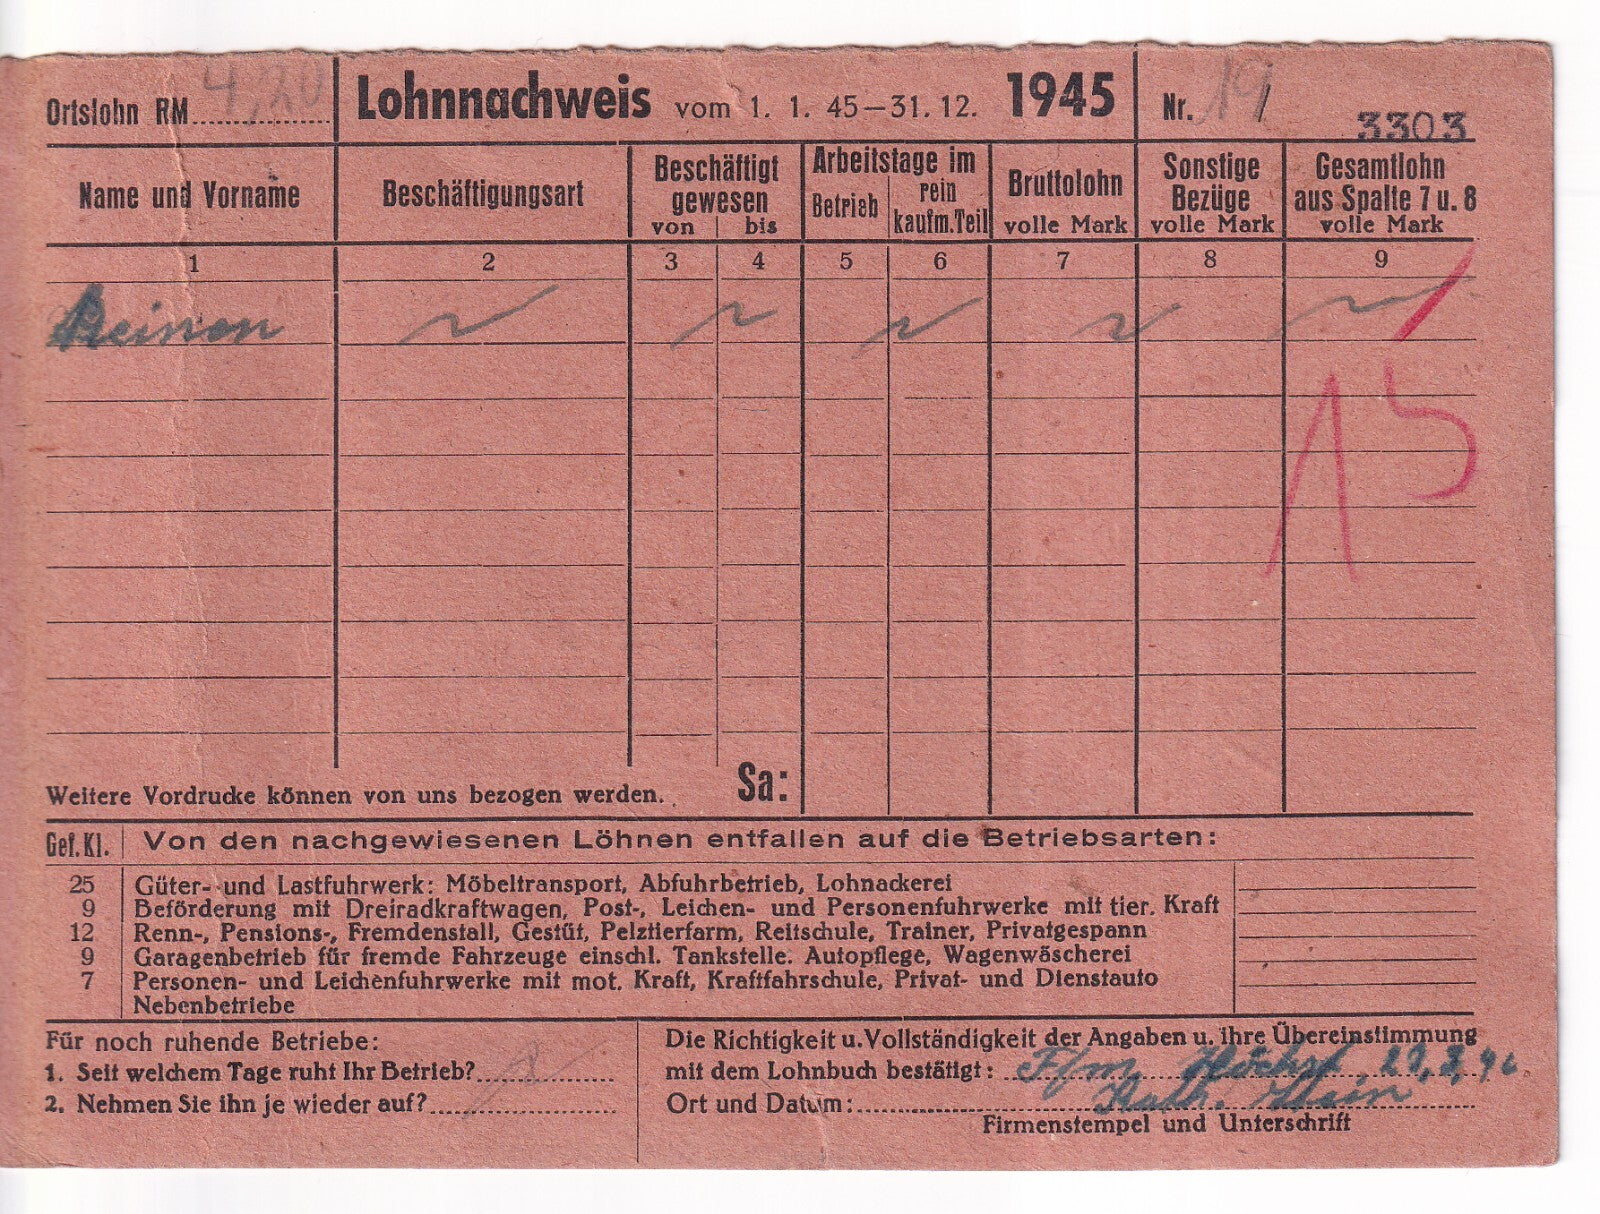 Ortslohn RM 4,20
Lohnnachweis vom 1. 1. 45–31. 12. 1945
Nr. 19
3303
Name und Vorname
Beschäftigungsart
Beschäftigt gewesen
von bis
Arbeitstage im
Betrieb
rein kaufm. Teil
Bruttolohn
volle Mark
Sonstige Bezüge
volle Mark
Gesamtlohn
aus Spalte 7 u. 8
volle Mark
1 2 3 4 5 6 7 8 9
15
Weitere Vordrucke können von uns bezogen werden.
Sa:
Gef. Kl. Von den nachgewiesenen Löhnen entfallen auf die Betriebsarten:
25 Güter- und Lastfuhrwerk: Möbeltransport, Abfuhrbetrieb, Lohnackerei
9 Beförderung mit Dreiradkraftwagen, Post-, Leichen- und Personenfuhrwerke mit tier. Kraft
12 Renn-, Pensions-, Fremdenstall, Gestüt, Pelztierfarm, Reitschule, Trainer, Privatgespann
9 Garagenbetrieb für fremde Fahrzeuge einschl. Tankstelle. Autopflege, Wagenwäscherei
7 Personen- und Leichenfuhrwerke mit mot. Kraft, Kraftfahrschule, Privat- und Dienstauto
Nebenbetriebe
Für noch ruhende Betriebe:
1. Seit welchem Tage ruht Ihr Betrieb?
2. Nehmen Sie ihn je wieder auf?
Die Richtigkeit u. Vollständigkeit der Angaben u. ihre Übereinstimmung
mit dem Lohnbuch bestätigt: F/m. Höchst
Ort und Datum: Kath.
Firmenstempel und Unterschrift